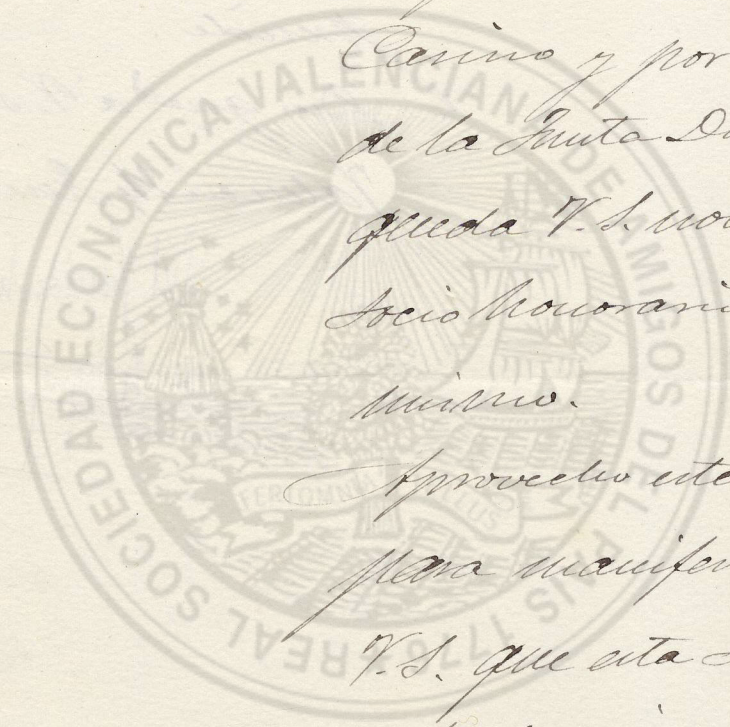 Casino y por
de la Junta Di
queda V. S. nom
socio honorari
mismo.
Aprovecho este
para manifes
V. S. que esta
REAL SOCIEDAD ECONOMICA VALENCIANA DE AMIGOS DEL PAIS 1776